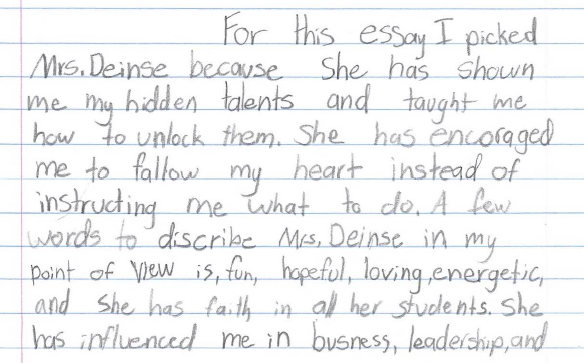 For this essay I picked
Mrs. Deinse because She has shown
me my hidden talents and taught me
how to unlock them. She has encoraged
me to fallow my heart instead of
instructing me what to do. A few
words to discribe Mrs. Deinse in my
point of view is, fun, hopeful, loving, energetic,
and She has faith in all her students. She
has influenced me in busness, leadership, and